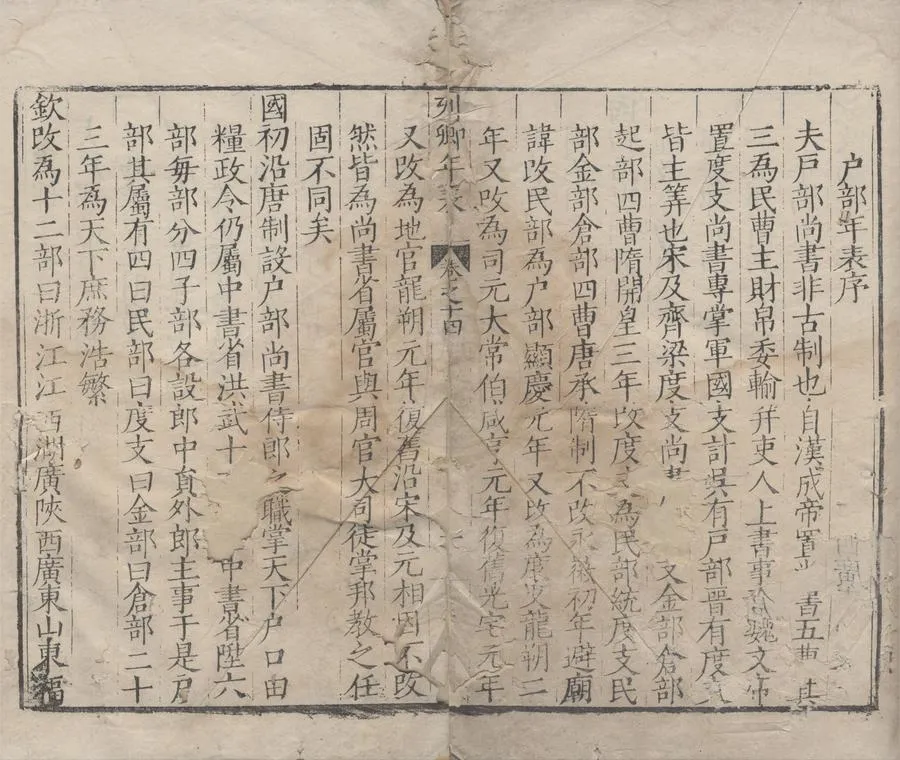 户部年表序
夫戸部尚書非古制也自漢成帝置 書五曹其
三為民曹主財帛委輸并吏人上書事 魏文帝
置度支尚書專掌軍國支計吳有戸部晉有度支
皆主筭也宋及齊梁度支尚書 又金部倉部
起部四曹隋開皇三年改度支為民部統度支民
部金部倉部四曹唐承隋制不改永徽初年避廟
諱改民部為户部顯慶元年又改為度支龍朔二
年又改為司元大常伯咸亨元年復舊光宅元年
列卿年表 卷之十四
又改為地官龍朔元年復舊沿宋及元相因不改
然皆為尚書省屬官與周官大司徒掌邦教之任
固不同矣
國初沿唐制設户部尚書侍郎之職掌天下户口田
糧政令仍屬中書省洪武十 中書省陞六
部每部分四子部各設郎中員外郎主事于是戸
部其屬有四曰民部曰度支曰金部曰倉部二十
三年為天下庶務浩繁
欽改為十二部曰浙江江西湖廣陝西廣東山東福